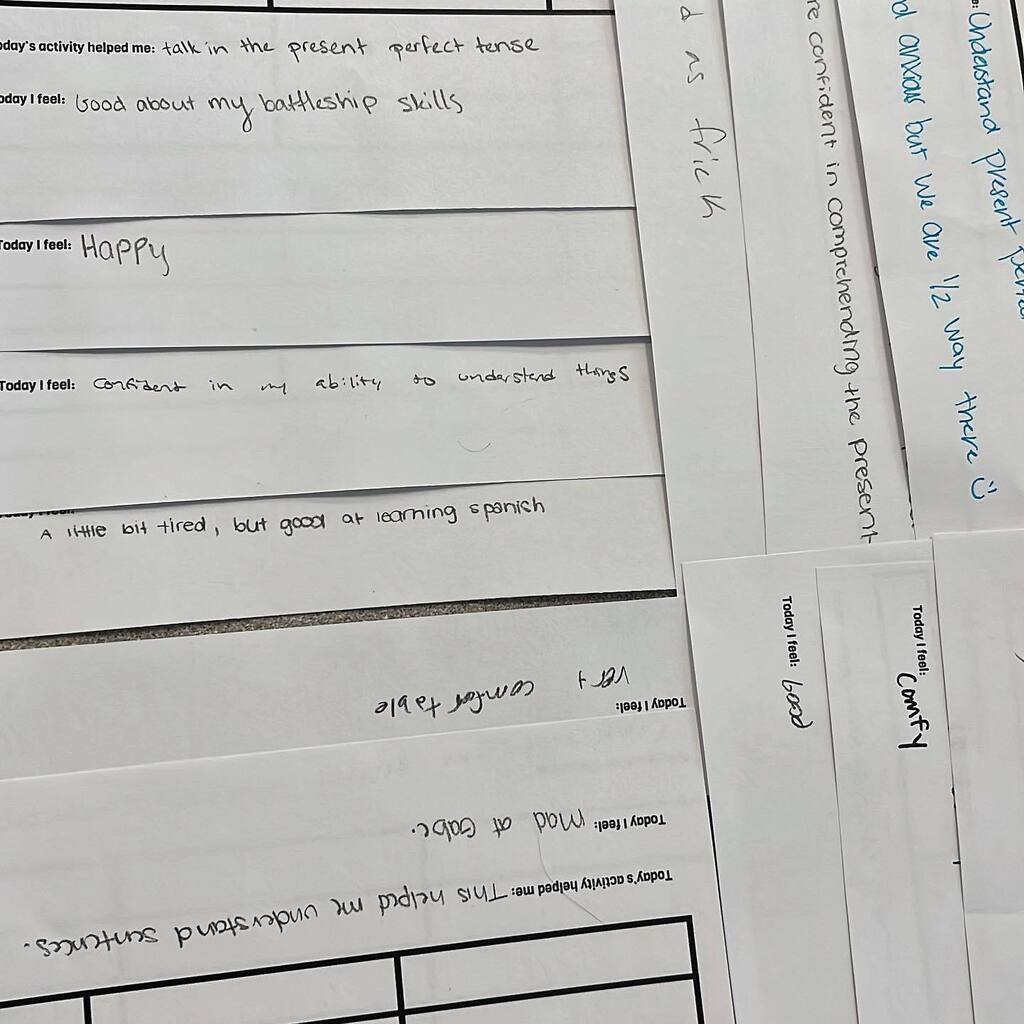 day's activity helped me: talk in the present perfect tense
oday I feel: Good about my battleship skills
Today I feel: Happy
Today I feel: Confident in my ability to understand things
A little bit tired, but good at learning spanish
Today I feel: very comfortable
Today I feel: Mad at Gabe.
Today's activity helped me: This helped me understand sentences.
d as frick
re confident in comprehending the present
d anxious but we are 1/2 way there
e: Understand present
Today I feel: Good
Today I feel: Comfy